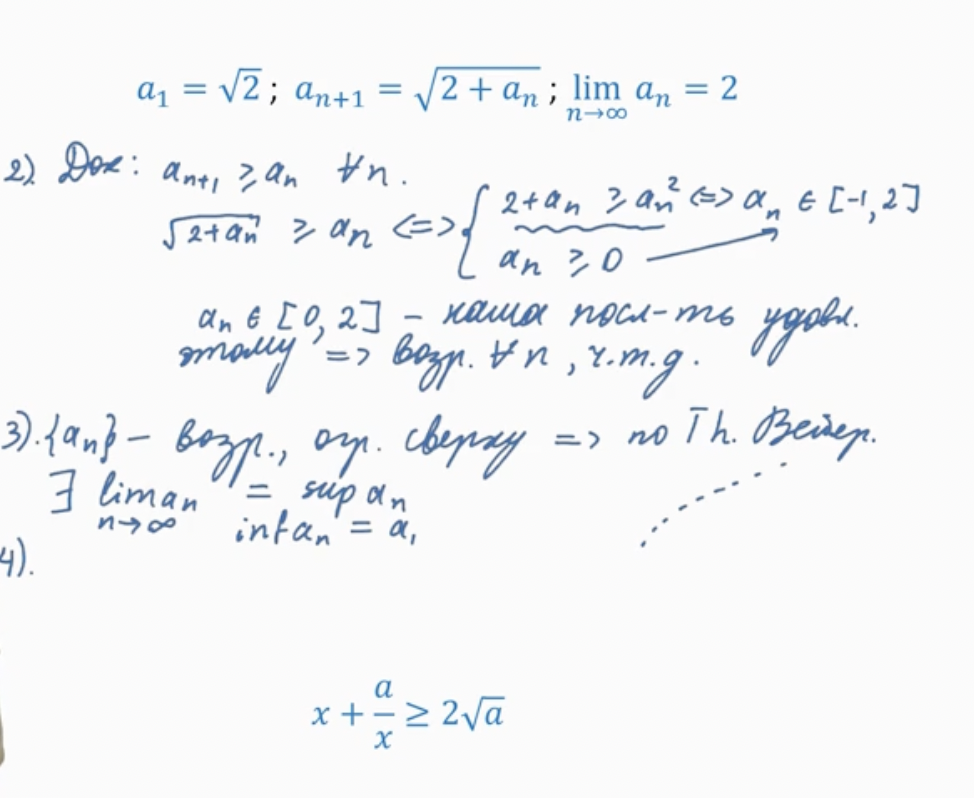 a₁ = √2 ; aₙ₊₁ = √(2 + aₙ) ; lim_{n→∞} aₙ = 2
2) Док: aₙ₊₁ ≥ aₙ ∀n.
√(2+aₙ) ≥ aₙ <=> { 2+aₙ ≥ aₙ² <=> aₙ ∈ [-1, 2]
aₙ ≥ 0
aₙ ∈ [0, 2] – наша посл-ть удовл.
этому => возр. ∀n, ч.т.д.
3). {aₙ} – возр., огр. сверху => по Th. Вейер.
∃ lim_{n→∞} aₙ = sup aₙ
inf aₙ = a₁
4).
x + a/x ≥ 2√a